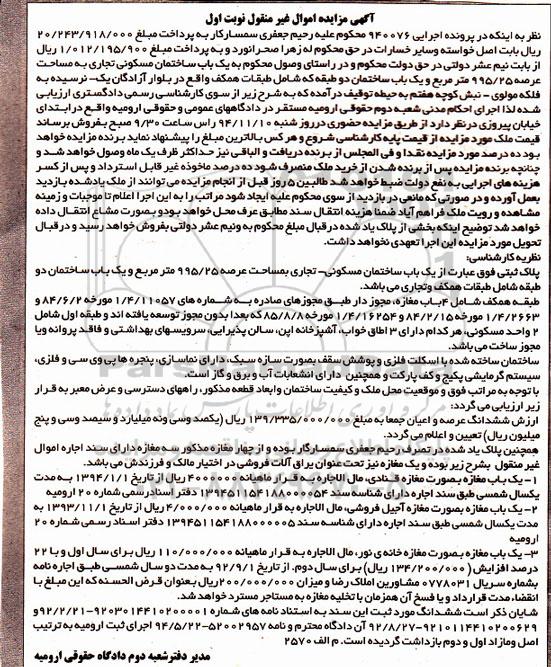 آگهی مزایده اموال غیر منقول نوبت اول
نظر به اینکه در پرونده اجرایی ۹۴۰۰۷۶ محکوم علیه رحیم جعفری سمسارکار به پرداخت مبلغ ۲۰/۲۴۳/۹۱۸/۰۰۰
ریال بابت اصل خواسته وسایر خسارات در حق محکوم له زهرا صحرانورد و به پرداخت مبلغ ۱/۰۱۲/۱۹۵/۹۰۰ ریال
از بابت نیم عشر دولتی در حق دولت محکوم و در راستای وصول محکوم به یک باب ساختمان مسکونی تجاری به مساحت
عرصه ۹۹۵/۲۵ متر مربع و یک باب ساختمان دو طبقه که شامل طبقات همکف واقع در بلوار آزادگان یک- نرسیده به
فلکه مولوی - نبش کوچه هفتم به حیطه توقیف درآمده که به شرح زیر از سوی کارشناسی رسمی دادگستری ارزیابی
شده لذا اجرای احکام مدنی شعبه دوم حقوقی ارومیه مستقر در دادگاههای عمومی و حقوقی ارومیه واقع در ابتدای
خیابان پیروزی در نظر دارد از طریق مزایده حضوری در روز شنبه ۹۴/۱۱/۱۰ راس ساعت ۹/۳۰ صبح بفروش برساند
قیمت ملک مورد مزایده از قیمت پایه کارشناسی شروع و هر کس بالاترین مبلغ را پیشنهاد نماید برنده مزایده خواهد
بود ده درصد مورد مزایده نقدا و فی المجلس از برنده دریافت و الباقی نیز حداکثر ظرف یک ماه وصول خواهد شد و
چنانچه برنده مزایده پس از برنده شدن از خرید ملک منصرف شود ده درصد ماخوذه غیر قابل استرداد و پس از کسر
هزینه های اجرایی به نفع دولت ضبط خواهد شد طالبین ۵ روز قبل از انجام مزایده می توانند از ملک یاد شده بازدید
بعمل آورده و در صورتی که مانعی در بازدید از سوی محکوم علیه ایجاد شود مراتب را به این اجرا اعلام تا موجبات و زمینه
مشاهده و رویت ملک فراهم آید ضمنا هزینه انتقال سند مطابق عرف محل خواهد بود و بصورت مشاع انتقال داده
خواهد شد توضیح اینکه بخشی از پلاک یاد شده در قبال مبلغ محکوم به ونیم عشر دولتی بفروش خواهد رسید و در قبال
تحویل مورد مزایده این اجرا تعهدی نخواهد داشت.
نظریه کارشناسی:
پلاک ثبتی فوق عبارت از یک باب ساختمان مسکونی- تجاری بمساحت عرصه ۹۹۵/۲۵ متر مربع و یک باب ساختمان دو
طبقه شامل طبقات همکف وتجاری می باشد.
طبقه همکف شامل ۴ باب مغازه، مجوز دار طبق مجوزهای صادره به شماره های ۱/۴/۱۱۰۵۷ مورخه ۸۴/۶/۲ و
۱/۴/۲۶۶۳ مورخه ۸۴/۲/۱۵ و ۱/۴/۱۶۲۵۴ مورخه ۸۵/۸/۸ که بعدا بدون مجوز توسعه یافته اند و طبقه اول شامل
۲ واحد مسکونی، هر کدام دارای ۳ اطاق خواب، آشپزخانه اپن، سالن پذیرایی، سرویسهای بهداشتی و فاقد پروانه ویا
مجوز ساخت می باشد.
ساختمان ساخته شده با اسکلت فلزی و پوشش سقف بصورت سازه سبک، دارای نماسازی، پنجره ها پی وی سی و فلزی،
سیستم گرمایشی پکیج و کف پارکت و همچنین دارای انشعابات آب و برق و گاز است.
با توجه به مراتب فوق و موقعیت محل ملک و کیفیت ساختمان و ابعاد قطعه مذکور، راههای دسترسی و عرض معبر به قرار
زیر ارزیابی می گردد:
ارزش ششدانگ عرصه و اعیان جمعا به مبلغ ۱۳۹/۳۳۵/۰۰۰/۰۰۰ ریال (یکصد وسی ونه میلیارد و سیصد وسی و پنج
میلیون ریال) تعیین و اعلام می گردد.
همچنین پلاک یاد شده در تصرف رحیم جعفری سمسارکار بوده و از چهار مغازه مذکور سه مغازه دارای سند اجاره اموال
غیر منقول بشرح زیر بوده و یک مغازه نیز تحت عنوان یراق آلات فروشی در اختیار مالک و فرزندش می باشد.
۱- یک باب مغازه بصورت مغازه قنادی، مال الاجاره به قرار ماهیانه ۴۰۰۰/۰۰۰ ریال از تاریخ ۱۳۹۴/۱/۱ به مدت
یکسال شمسی طبق سند اجاره دارای شناسه سند ۱۳۹۴۵۱۱۵۴۱۸۸۰۰۰۰۵۴ دفتر اسناد رسمی شماره ۲۰ ارومیه
۲- یک باب مغازه بصورت مغازه آجیل فروشی، مال الاجاره به قرار ماهیانه ۴/۰۰۰/۰۰۰ ریال از تاریخ ۱۳۹۳/۱۱/۱ به
مدت یکسال شمسی طبق سند اجاره دارای شناسه سند ۱۳۹۴۵۱۱۵۴۱۸۸۰۰۰۰۰۵ دفتر اسناد رسمی شماره ۲۰
ارومیه
۳- یک باب مغازه بصورت مغازه خانه ی نور، مال الاجاره به قرار ماهیانه ۱۱۰/۰۰۰/۰۰۰ ریال برای سال اول و با ۲۲
درصد افزایش ( ۱۳۴/۲۰۰/۰۰۰ ریال) برای سال دوم. از تاریخ ۹۲/۹/۱ به مدت دو سال شمسی طبق اجاره نامه
بشماره سریال ۰۷۷۸۰۳۱ مشاورین املاک رضا و میزان ۲۰۰/۰۰۰/۰۰۰ ریال بعنوان قرض الحسنه که این مبلغ با
انقضاء مدت قرارداد و یا فسخ آن همزمان با تخلیه مغازه به مستاجر مسترد خواهد شد.
شایان ذکر است ششدانگ مورد ثبت این سند به استناد نامه های شماره ۹۲۰۳۰۱۴۴۱۰۲۰۰۰۰۱-۹۲/۲/۲۱ و
۹۲۱۰۱۱۴۴۱۰۲۰۰۶۲۹-۹۲/۸/۲۷ آن دادگاه محترم و نامه ۵۲۰۰۲۹۵۷-۹۴/۵/۲۲ اجرای ثبت ارومیه به ترتیب
اصل ومازاد اول و دوم بازداشت گردیده است. م الف ۲۵۷۰
مدیر دفتر شعبه دوم دادگاه حقوقی ارومیه